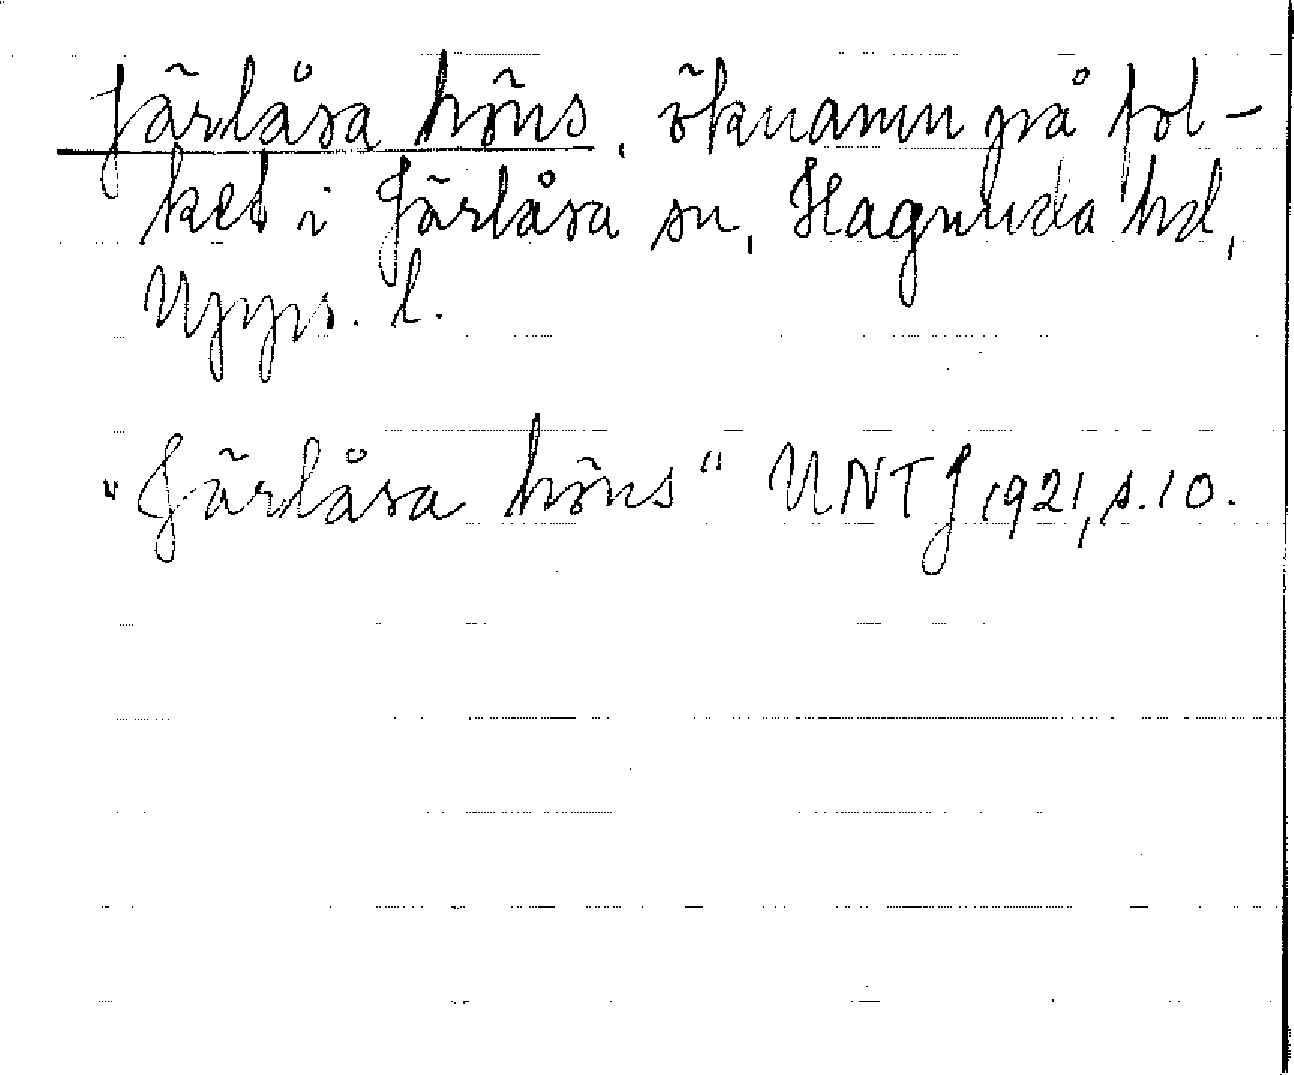 Järlåsa höns, öknamn på fol-
ket i Järlåsa sn, Hagunda hd,
Upps. l.
"Järlåsa höns" UNTJ 1921, s. 10.